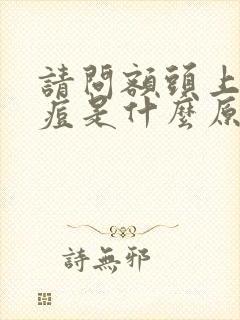 請問額頭上
痘是什麼原
詩無邪